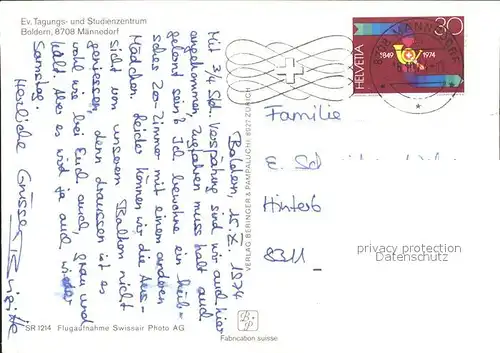 Ev. Tagungs- und Studienzentrum
Boldern, 8708 Männedorf
Boldern, 15.X. 1974
Mit 3/4 Std. Verspätung sind wir auch hier
angekommen, Zugfahren muss halt auch
gelernt sein! Ich bewohne ein hüb-
sches 2er-Zimmer mit einem anderen
Mädchen. Leider können wir die Aus-
sicht von unserem Balkon nicht
geniessen, denn draussen ist es
wohl wie bei Euch auch, grau und
kalt. Aber es wird ja auch wieder
Samstag!
Herzliche Grüsse
Brigitte
VERLAG BERINGER & PAMPALUCHI 8927 ZÜRICH
HELVETIA
30
1849 1974
8708 MÄNNEDORF
Familie
E. Sd
Hinterb
8311
privacy protection
Datenschutz
SR 1214 Flugaufnahme Swissair Photo AG
B P
Fabrication suisse